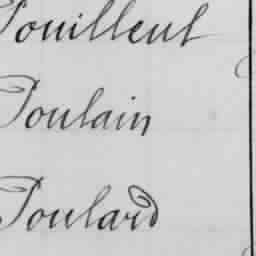 Pouilleul
Poulain
Poulard